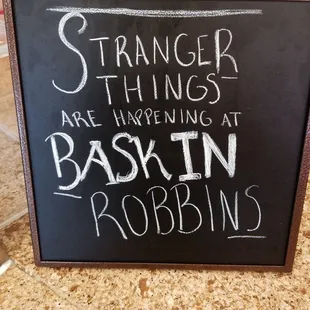 STRANGER
THINGS
ARE HAPPENING AT
BASKIN
ROBBINS